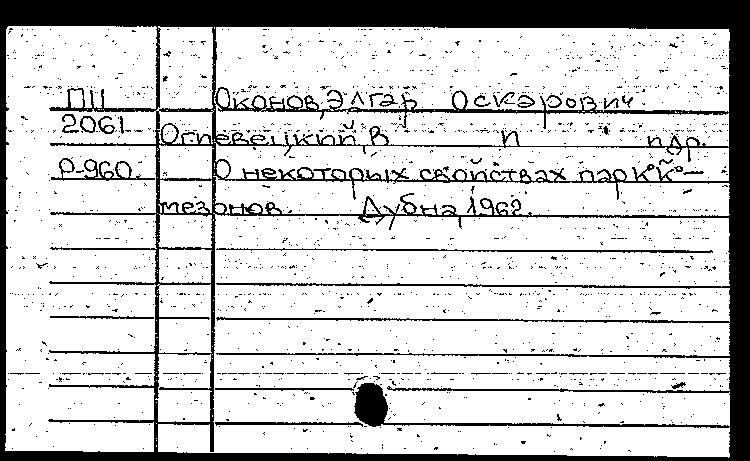 ПП Оконов, Элгар Оскарович
2061 Огиевецкий, В п пдр.
Р-960. О некоторых свойствах пар K°K̃°-
мезонов. Дубна, 1962.